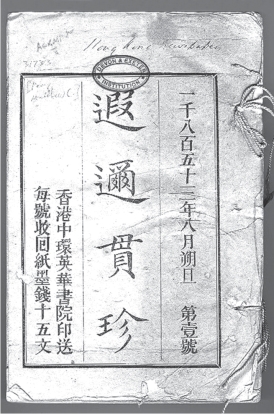 DEVON & EXETER
INSTITUTION
一千八百五十三年八月朔旦 第壹號
遐邇貫珍
香港中環英華書院印送
每號收回紙墨錢十五文